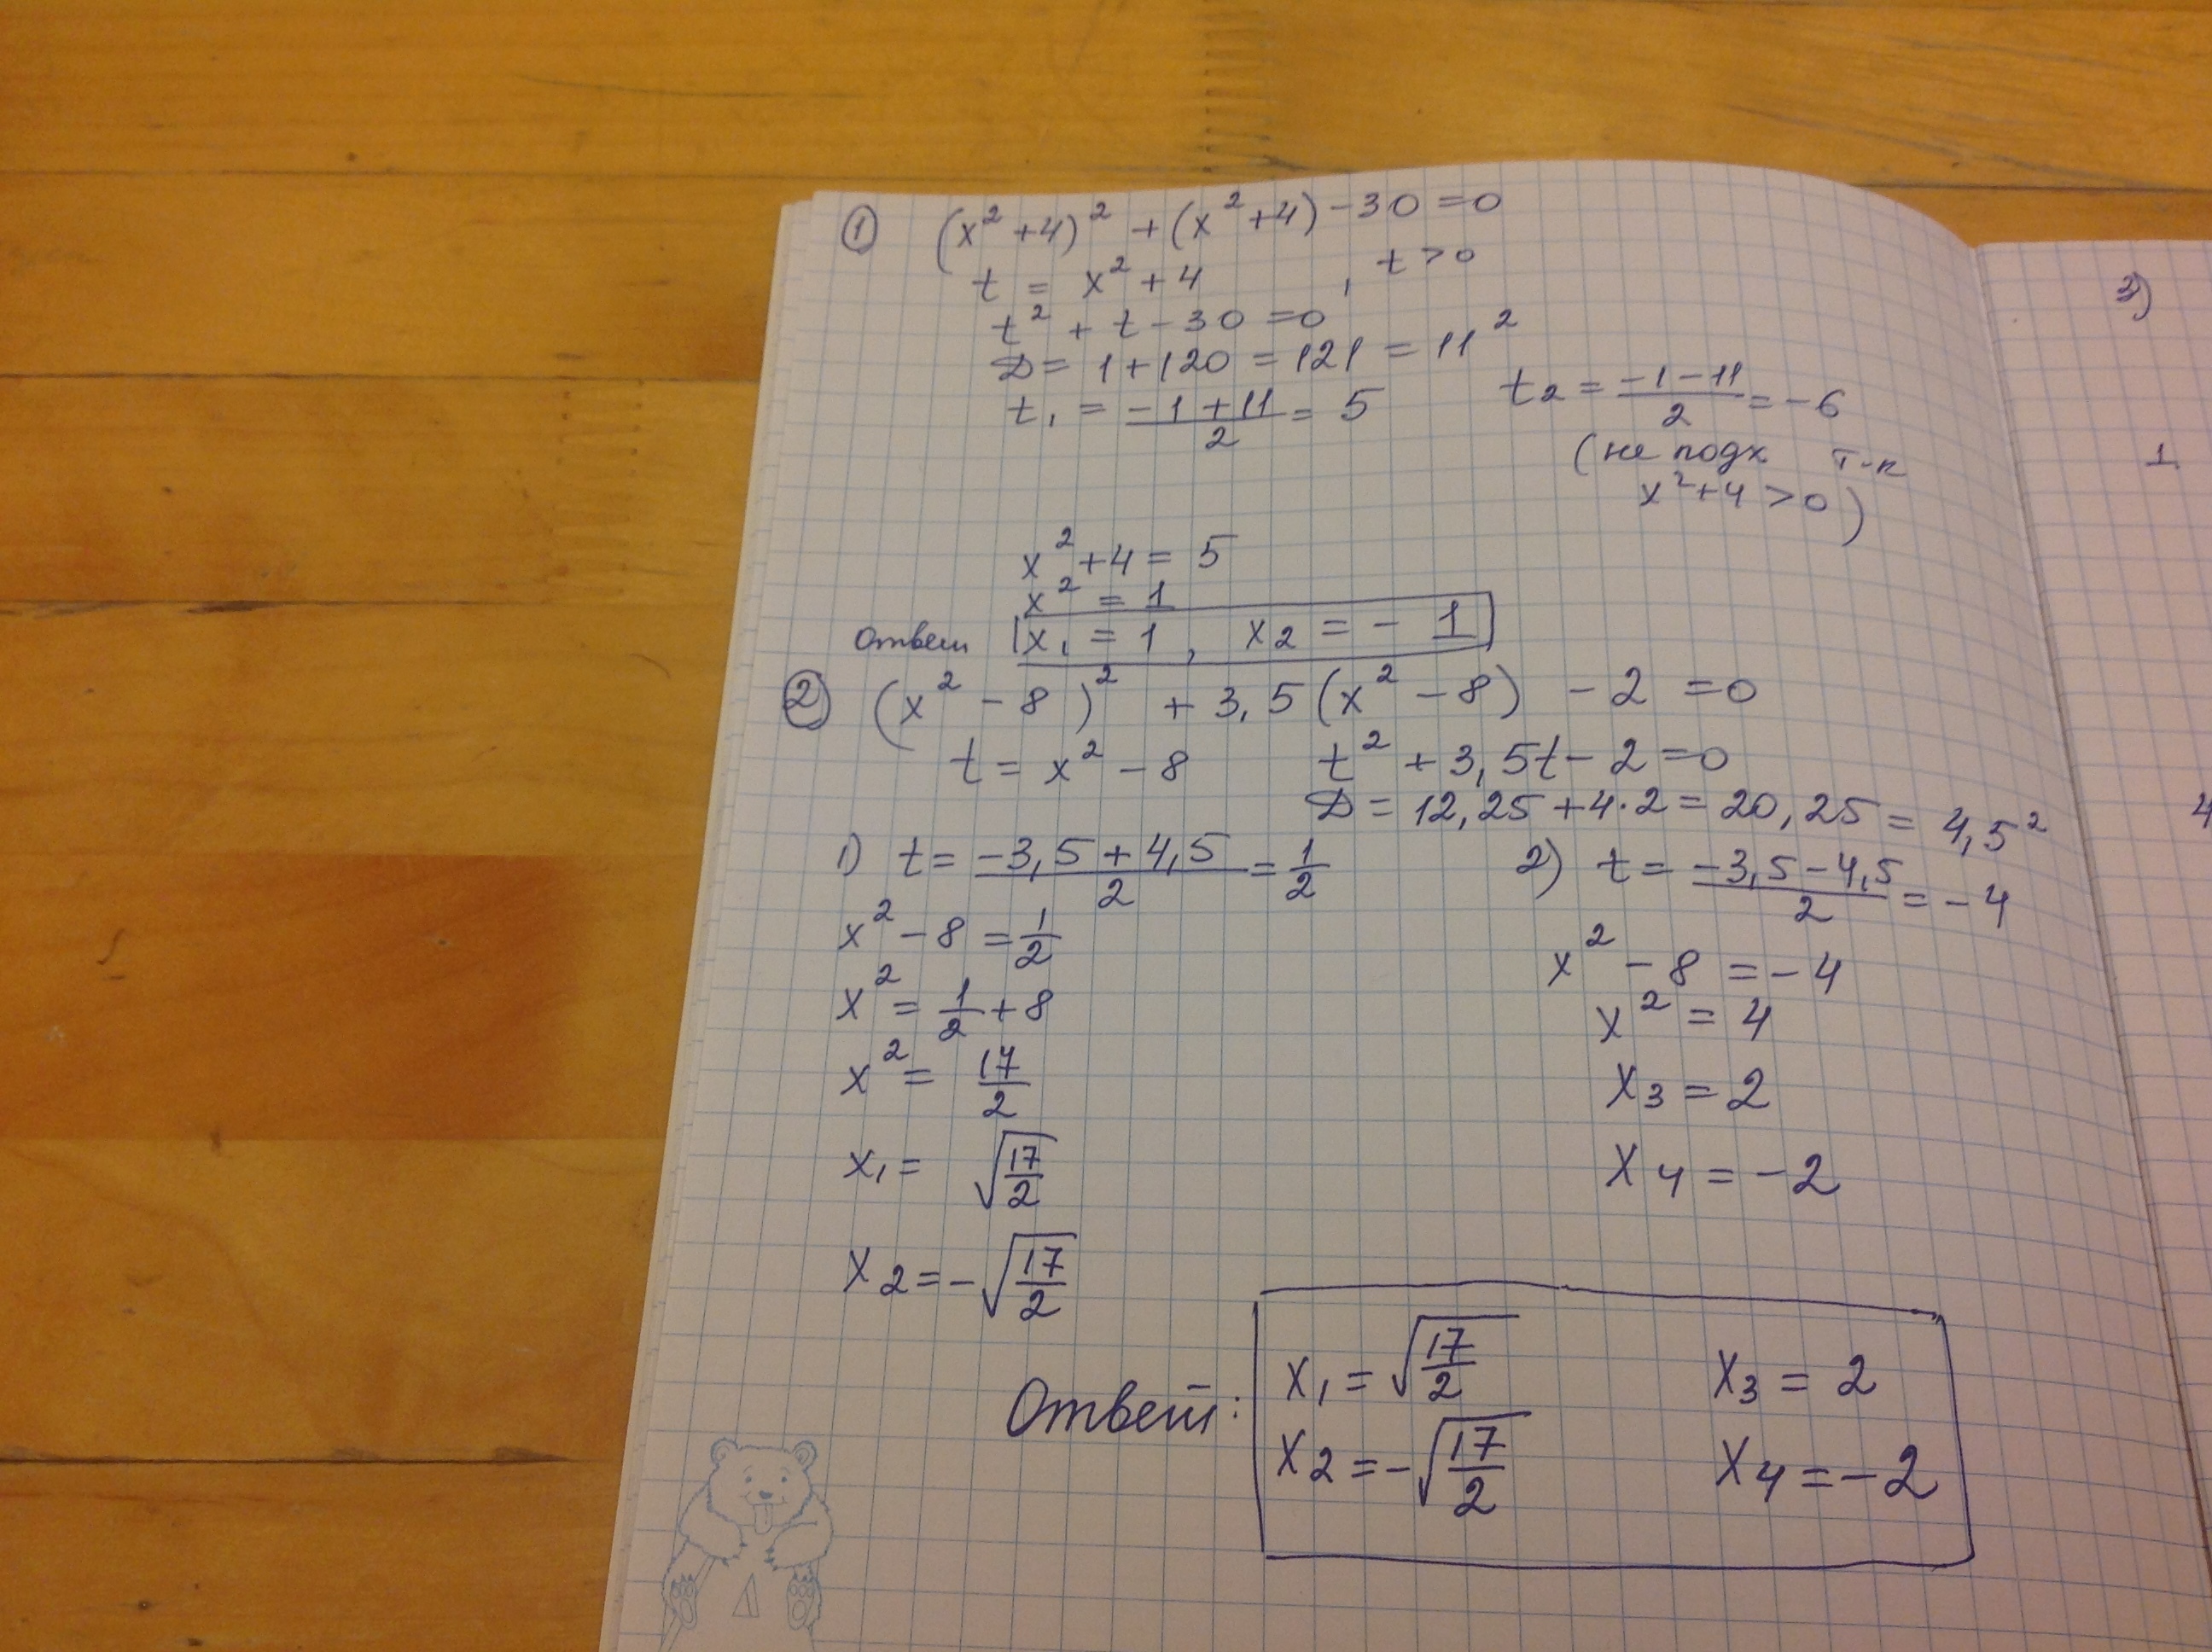 ① (x² + 4)² + (x² + 4) - 30 = 0
t = x² + 4 , t > 0
t² + t - 30 = 0
D = 1 + 120 = 121 = 11²
t₁ = (-1 + 11)/2 = 5 t₂ = (-1 - 11)/2 = -6
(не подх т-к
x² + 4 > 0)
x² + 4 = 5
x² = 1
Ответ x₁ = 1, x₂ = - 1
② (x² - 8)² + 3,5(x² - 8) - 2 = 0
t = x² - 8 t² + 3,5t - 2 = 0
D = 12,25 + 4·2 = 20,25 = 4,5²
1) t = (-3,5 + 4,5)/2 = 1/2
x² - 8 = 1/2
x² = 1/2 + 8
x² = 17/2
x₁ = √(17/2)
x₂ = -√(17/2)
2) t = (-3,5 - 4,5)/2 = -4
x² - 8 = -4
x² = 4
x₃ = 2
x₄ = -2
Ответ:
x₁ = √(17/2) x₃ = 2
x₂ = -√(17/2) x₄ = -2
3)
1
4